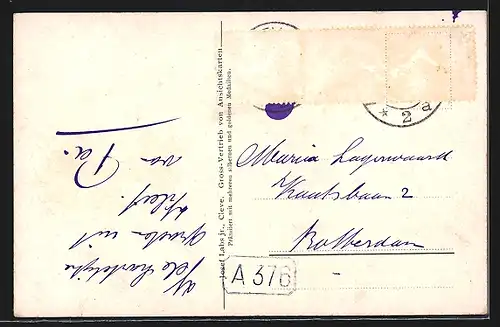 Vele hartelijke
groeten uit
Kleef.
van Pa.
Josef Labs jr., Cleve. Gross-Vertrieb von Ansichtskarten
Prämiiert mit mehreren silbernen und goldenen Medaillen.
* 2 a
Maria Lagerwaard
Kautsbaan 2
Rotterdam
A 376